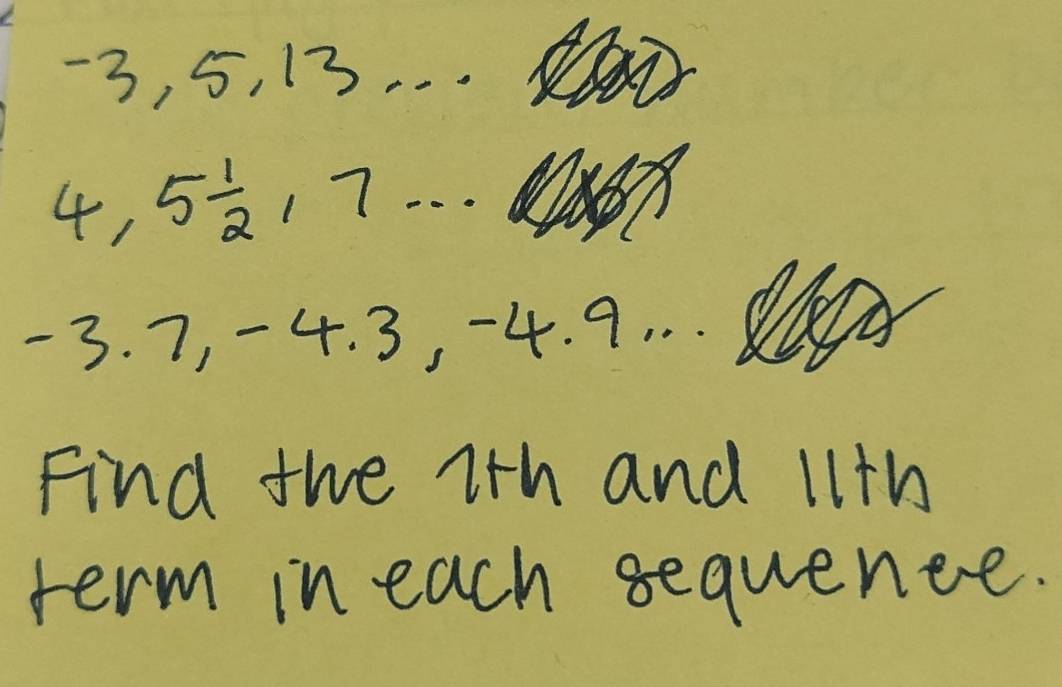 -3, 5, 13 ...
4, 5 1/2, 7 ...
-3.7, -4.3, -4.9 ...
Find the 7th and 11th
term in each sequence.